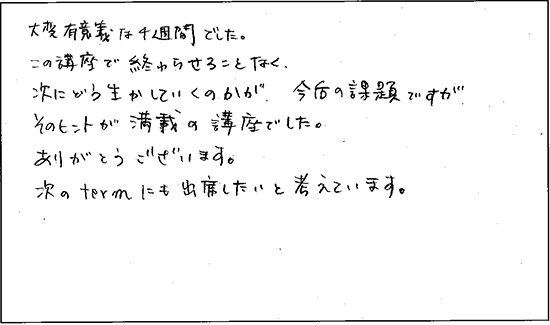 大変有意義な4週間でした。
この講座で終わらせることなく、
次にどう生かしていくのかが、今后の課題ですが
そのヒントが満載の講座でした。
ありがとうございます。
次のtermにも出席したいと考えています。